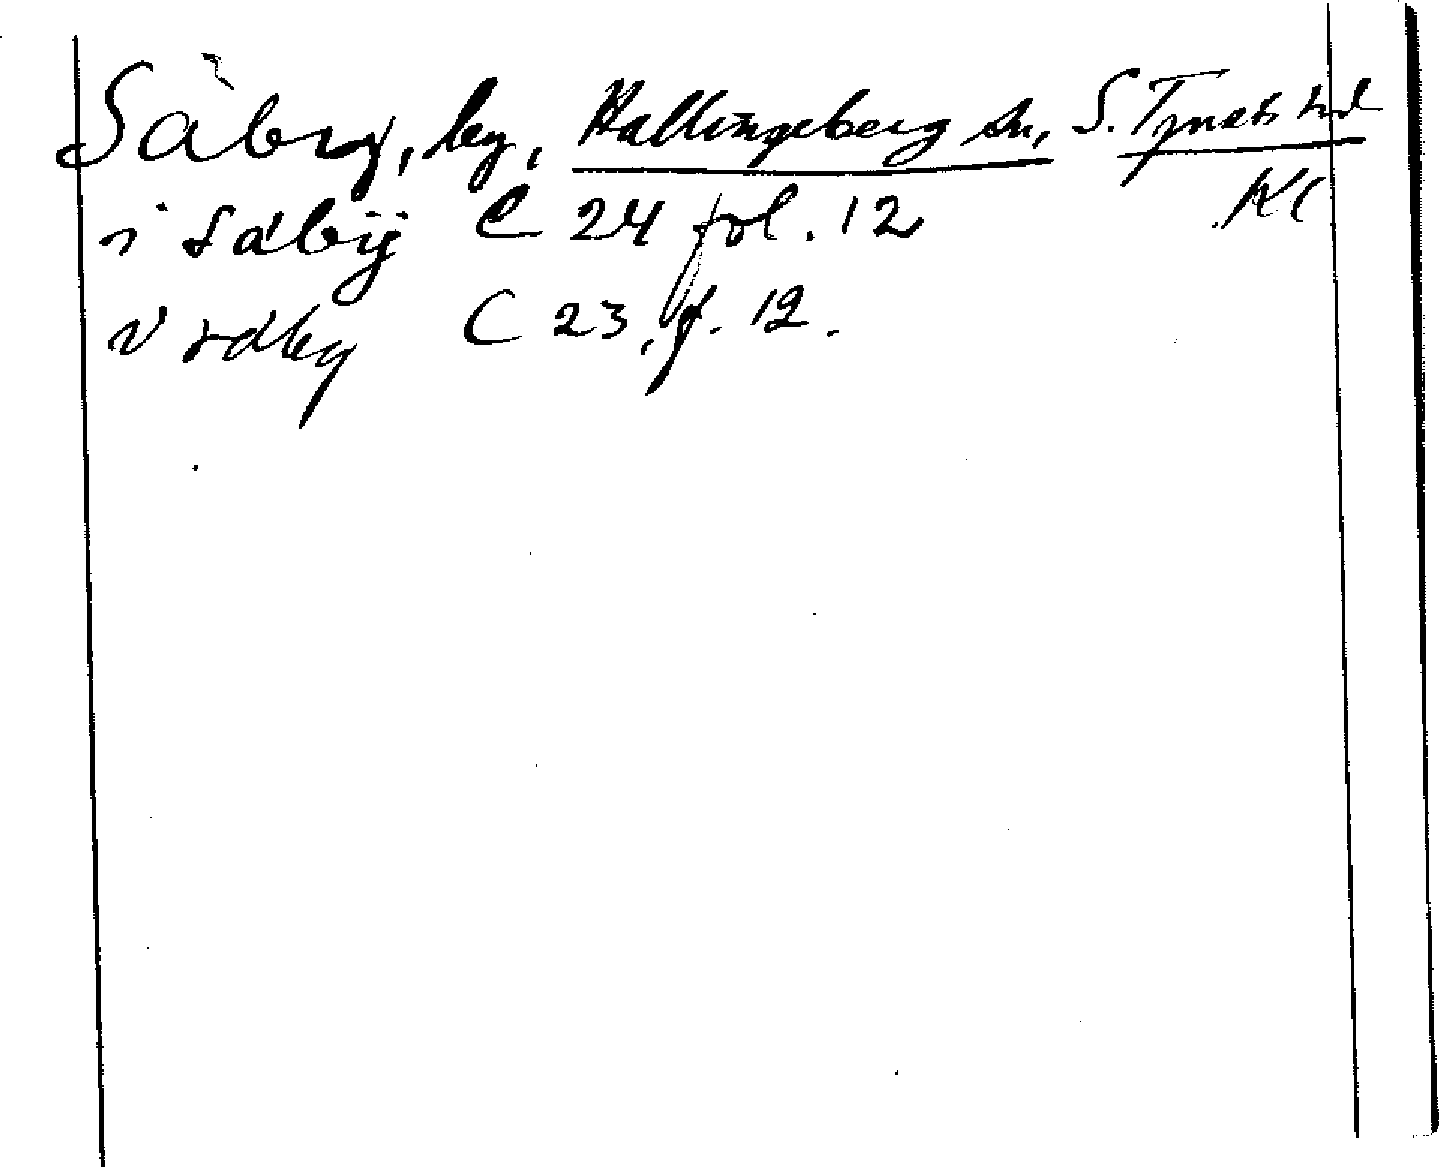 Säby, by, Hallingeberg sn, S. Tjusts hd
Kl
i säbÿ C 24 fol. 12
v säby C 23, f. 12.